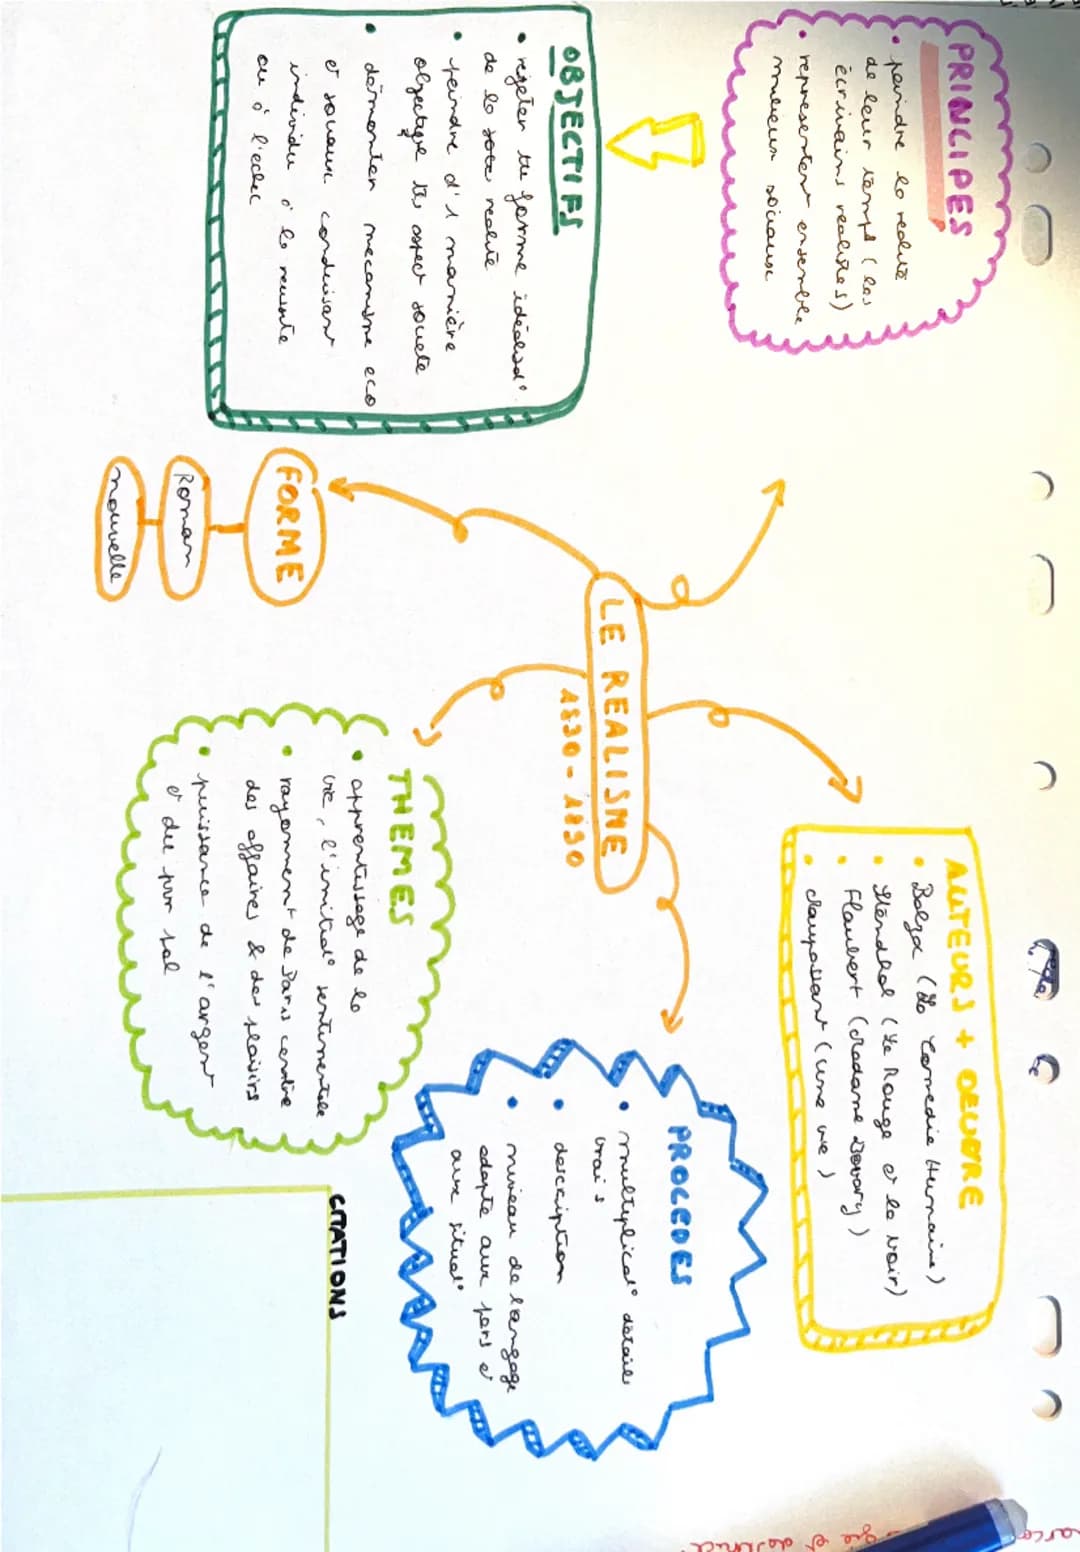 PRINCIPES
• peindre la realité
de leur temps (les
écrivains realistes)
• representer ensemble
milieux sociaux
OBJECTIFS
• rejeter tte forme idéalisat°
de la realité
• peindre d'1 manière
objective les aspect société
• démonter mecanisme eco
et sociaux conduisant
individu à la reussite
ou à l'echec
LE REALISME
1830-1890
FORME
Roman
nouvelle
AUTEURS + OEUVRE
• Balzac (La Comedie Humaine)
• Stendhal (Le Rouge et le Noir)
• Flaubert (Madame Bovary)
• Maupassant (une vie)
THEMES
• apprentissage de la
vie, l'initiat° sentimentale
• rayonnement de Paris centre
des affaires & des plaisirs
• puissance de l'argent
et du
PROCEDES
• multiplicat° details
vrais
• description
• niveau de langage
adapte aux pers et
aux situat°
CITATIONS